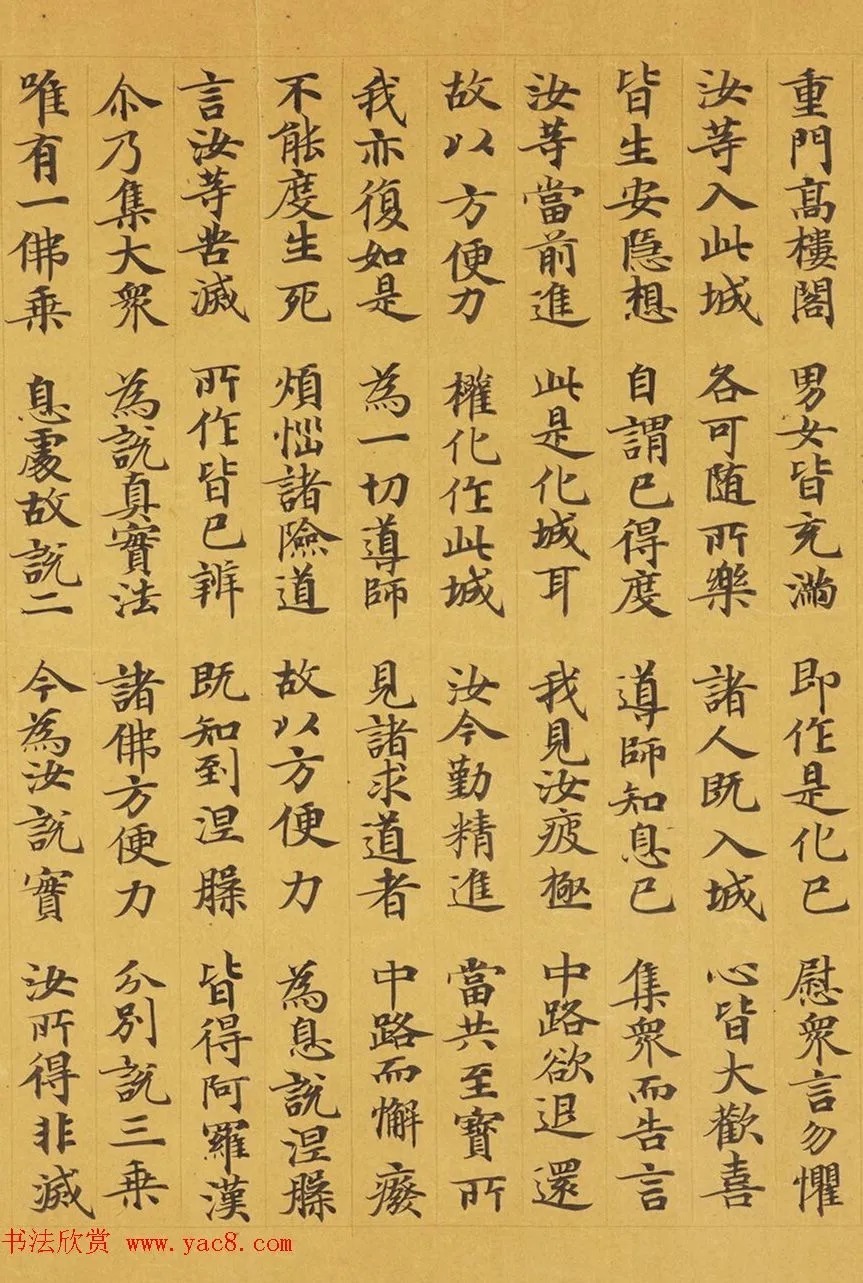 重門髙樓閣 男女皆充滿 即作是化已 慰衆言勿懼
汝等入此城 各可随所樂 諸人既入城 心皆大歡喜
皆生安隱想 自謂已得度 導師知息已 集衆而告言
汝等當前進 此是化城耳 我見汝疲極 中路欲退還
故以方便力 權化作此城 汝今勤精進 當共至寶所
我亦復如是 為一切導師 見諸求道者 中路而懈癈
不能度生死 煩惱諸險道 故以方便力 為息說涅槃
言汝等苦滅 所作皆已辨 既知到涅槃 皆得阿羅漢
尒乃集大衆 為說真實法 諸佛方便力 分別說三乗
唯有一佛乗 息處故說二 今為汝說實 汝所得非滅
书法欣赏 www.yac8.com